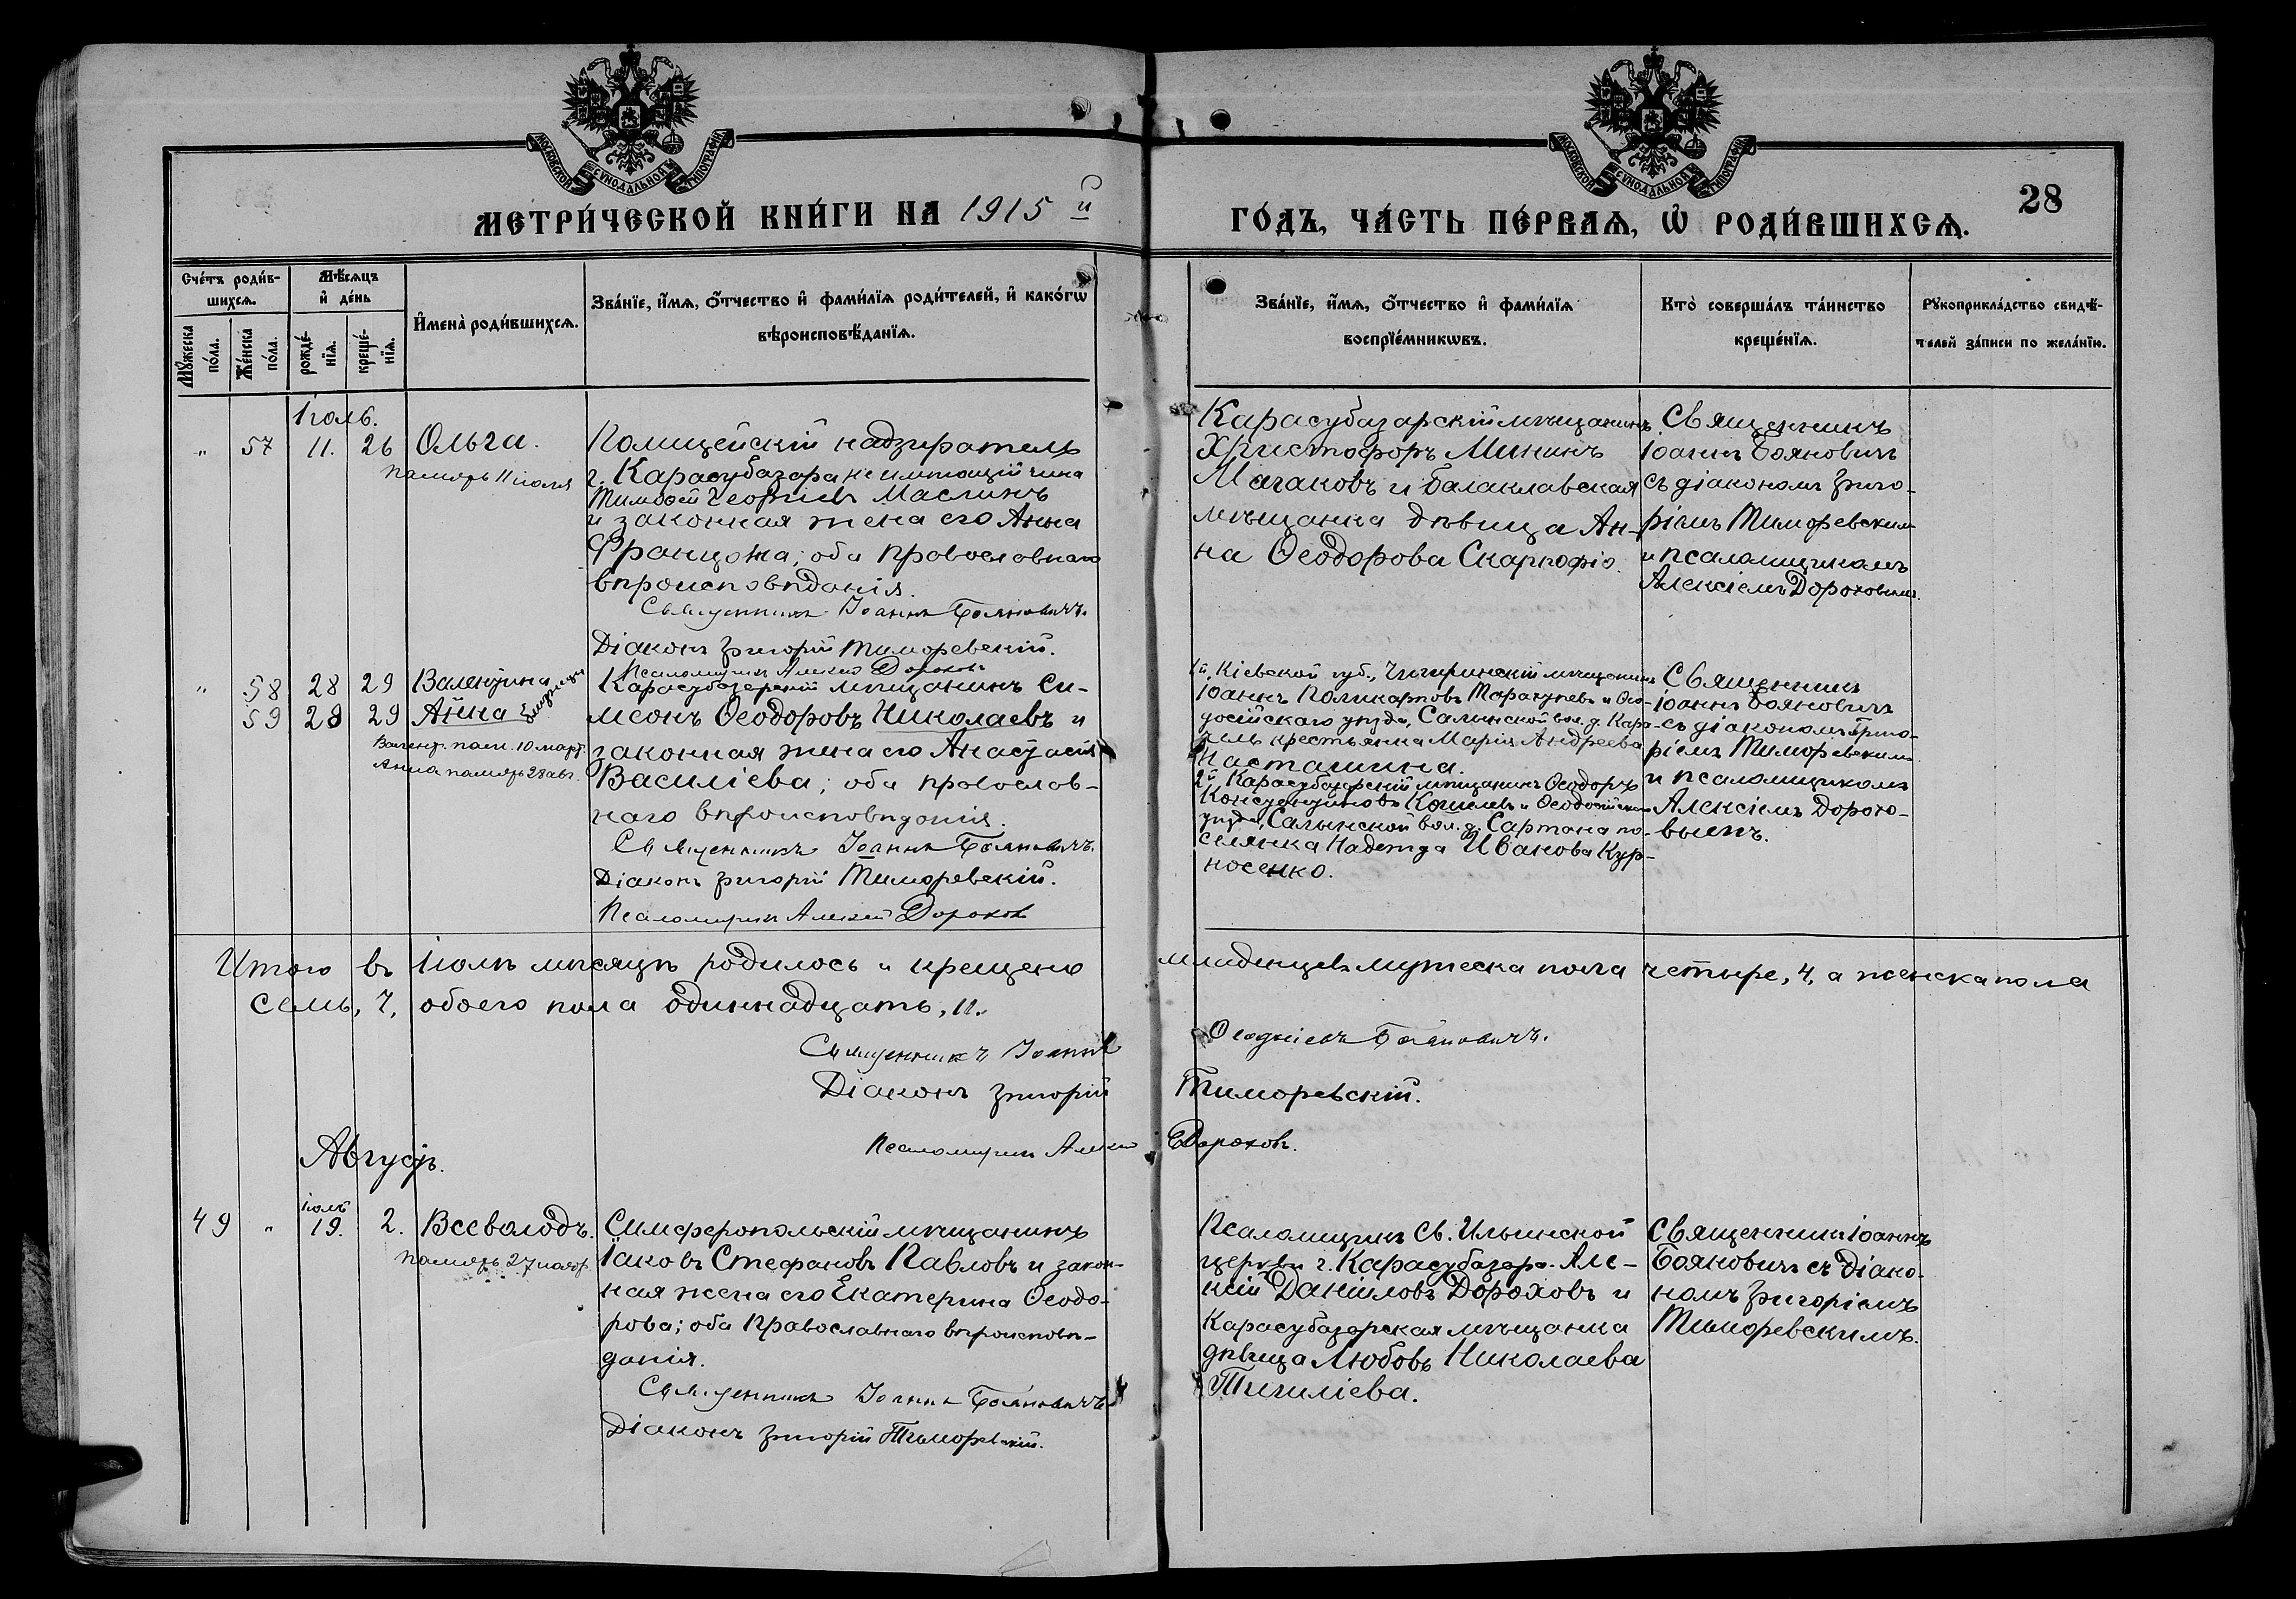 МОСКОВСКОЙ СУНОДАЛЬНОЙ ТИПОГРАФІИ
МОСКОВСКОЙ СУНОДАЛЬНОЙ ТИПОГРАФІИ
МЕТРИ́ЧЕСКОЙ КНИ́ГИ НА 1915 й
ГО́ДЪ, ЧА́СТЬ ПЕ́РВАѦ, Ѡ҆ РОДИ́ВШИХСѦ.
28
Сче́тъ роди́в-
шихсѧ.
Мѣ́сѧцъ
и҆ де́нь
И҆мена̀ роди́вшихсѧ.
Зва́нїе, и҆́мѧ, ѻ҆́тчество и҆ фами́лїѧ роди́телей, и҆ како́гѡ
вѣроисповѣ́данїѧ.
Мꙋ́жеска
по́ла.
Же́нска
по́ла.
рожде́-
нїѧ.
креще́-
нїѧ.
Зва́нїе, и҆́мѧ, ѻ҆́тчество и҆ фами́лїѧ
воспрїе́мникѡвъ.
Кто̀ соверша́лъ та́инство
креще́нїѧ.
Рꙋкоприкла́дство свидѣ́-
телей за́писи по жела́нїю.
Іюль.
„ 57 11. 26 Ольга.
память 11 іюля
Полицейскій надзиратель
г. Карасубазара не имѣющій чина
Тимофей Георгіев Маслинъ
и законная жена его Анна
Францовна; оба православнаго
вѣроисповѣданія.
Священникъ Іоаннъ Бояновичъ.
Діаконъ Григорій Тиморевскій.
Псаломщикъ Алексій Дорохов
Карасубазарскій мѣщанинъ
Христофоръ Мининъ
Магаковъ и балаклавская
мѣщанка дѣвица Ан-
на Ѳеодорова Скарлофіо.
Священникъ
Іоаннъ Бояновичъ
съ діакономъ Григо-
ріемъ Тиморевскимъ
и псаломщикомъ
Алексіемъ Дороховымъ.
„ 58 28 29 Валентина
59 28 29 Анна близнецы
Валент. пам. 10 март.
Анна память 28 авг.
Карасубазарскій мѣщанинъ Си-
меонъ Ѳеодоровъ Николаевъ и
законная жена его Анастасія
Василіева; оба православ-
наго вѣроисповѣданія.
Священникъ Іоаннъ Бояновичъ.
Діаконъ Григорій Тиморевскій.
Псаломщикъ Алексій Дорохов
1й, Кіевской губ., Чигиринскій мѣщанинъ
Іоаннъ Поликарповъ Таракуневъ и Ѳео-
досійскаго уѣзда, Салынской вол. д. Кара-
крестьянка Марія Андреева
Касташина.
2й Карасубазарскій мѣщанинъ Ѳеодоръ
Константиновъ Кошелевъ и Ѳеодосійскаго
уѣзда, Салынской вол. д. Сартана по-
селянка Надежда Иванова Кур-
носенко.
Священникъ
Іоаннъ Бояновичъ
съ діакономъ Григо-
ріемъ Тиморевскимъ
и псаломщикомъ
Алексіемъ Дорохо-
вымъ.
Итого въ Іюлѣ мѣсяцѣ родилось и крещено младенцевъ мужеска пола четыре, 4, а женска пола
семь, 7, обоего пола одиннадцать, 11.
Священникъ Іоаннъ Бояновичъ.
Діаконъ Григорій Тиморевскій.
Псаломщикъ Алексій Дороховъ.
Августъ.
Іюль
49 „ 19. 2. Всеволодъ.
память 27 нояб.
Симферопольскій мѣщанинъ
Іаковъ Стефановъ Павловъ и закон-
ная жена его Екатерина Ѳеодо-
рова; оба православнаго вѣроисповѣ-
данія.
Священникъ Іоаннъ Бояновичъ
Діаконъ Григорій Тиморевскій.
Псаломщикъ Св. Ильинской
церкви г. Карасубазара. Але-
ксій Даніиловъ Дороховъ и
Карасубазарская мѣщанка
дѣвица Любовь Николаева
Тигиліева.
Священникъ Іоаннъ
Бояновичъ съ діако-
номъ Григоріемъ
Тиморевскимъ.